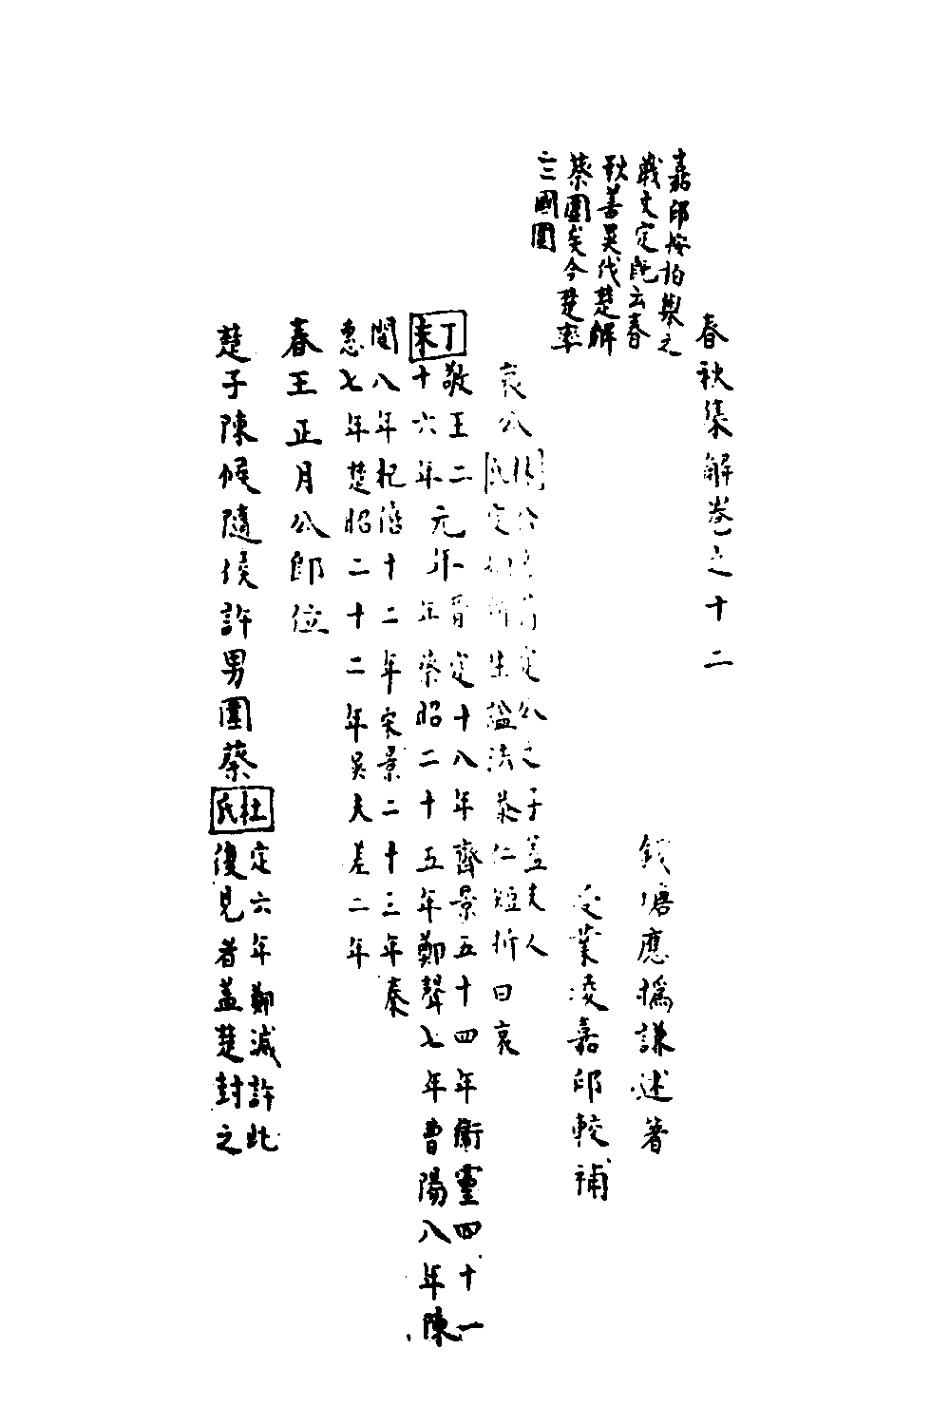 春秋集解卷之十二
嘉邵按柏舉之
戰文定既云春
秋善吳伐楚解
蔡圍矣今楚率
三國圍
錢塘應撝謙述著
受業凌嘉邵較補
哀公
林氏
公定公之子蓋夫人
定姒所生諡法恭仁短折曰哀
丁未
敬王二
十六年
元年
晉定十八年齊景五十四年衛靈四十一
年蔡昭二十五年鄭聲七年曹陽八年陳
閔八年杞僖十二年宋景二十三年秦
惠七年楚昭二十二年吳夫差二年
春王正月公即位
楚子陳侯隨侯許男圍蔡
杜氏
定六年鄭滅許此
復見者蓋楚封之